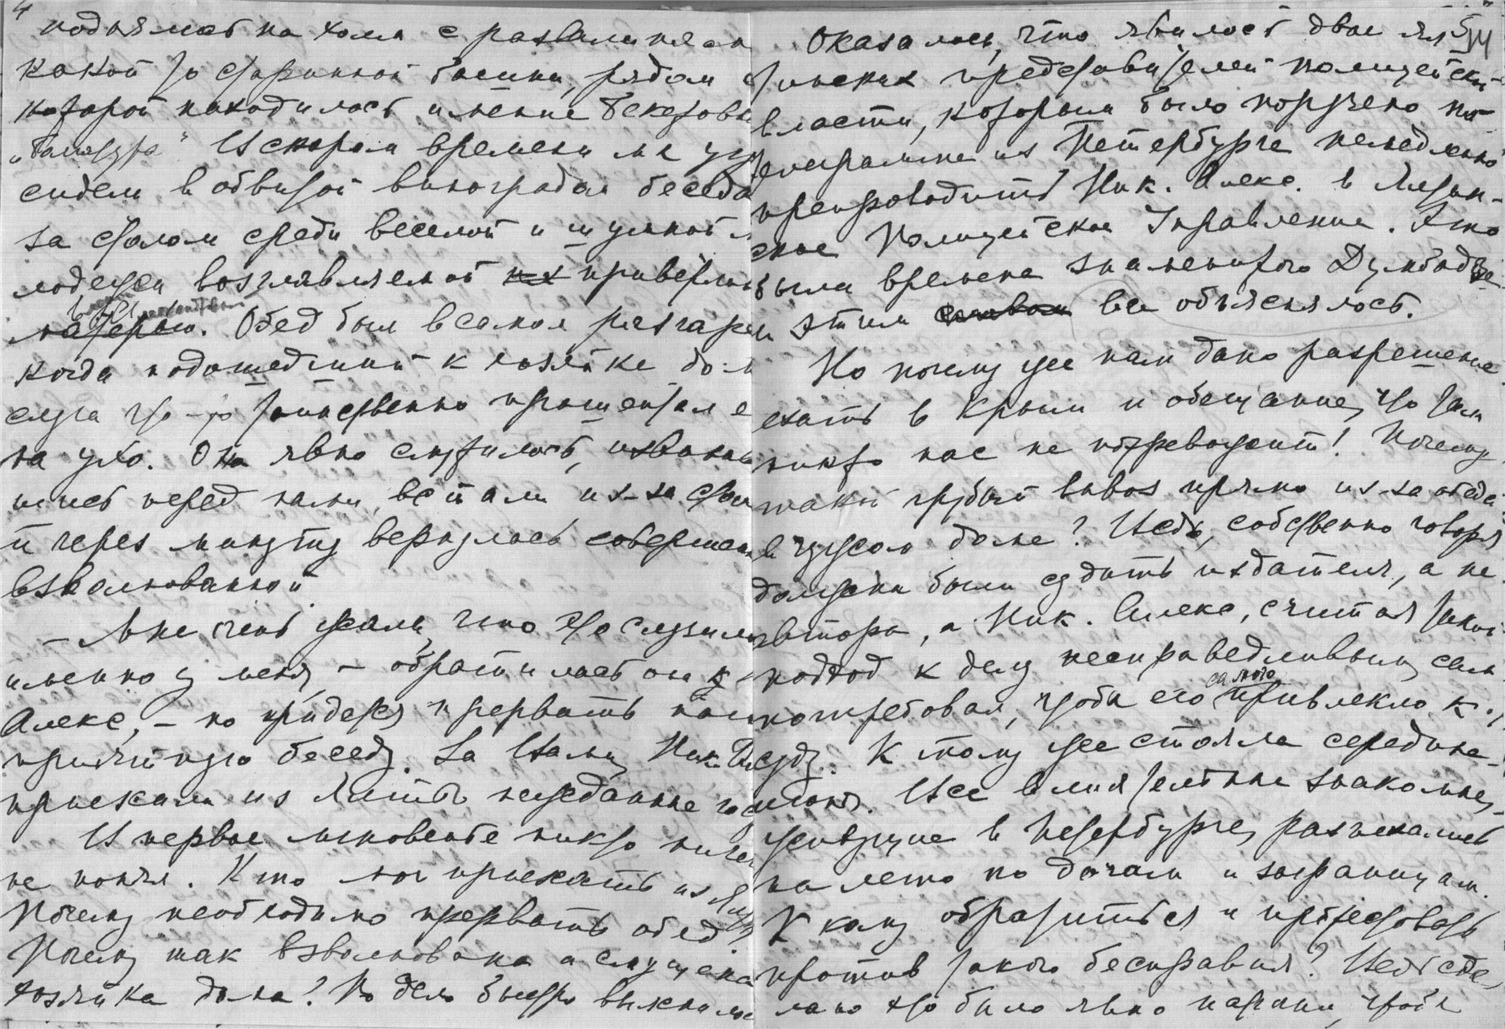 4
поднялись на холм с развалинами
какой то старинной башни, рядом с
которой находилось имение Бекетовых
В скором времени мы уже
сидели в обвитой виноградом беседке
за столом среди веселой и шумной
молодежи возглавляемой их приветливой
матерью. Обед был в самом разгаре
когда подошедший к хозяйке дома
слуга что-то таинственно прошептал ей
на ухо. Она явно смутилась, извини
лись перед нами, встали из-за стола
и через минуту вернулась совершенно
взволнованной
– Мне очень жаль, что это случилось
именно у меня – обратилась она к
Алекс, – но придется прервать нашу
приятную беседу. За Вами, Ник.
приехали из Ялты нежданные гости
В первое мгновенье никто ничего
не понял. Кто мог приехать из Ялты
Почему необходимо прервать обед?
Почему так взволнована и смущена
хозяйка дома? Но дело быстро выяснилось
Оказалось, что явилось двое ял
тинских представителей полицейской
власти, которым было поручено по
телеграмме из Петербурга немедленно
препроводить Ник. Алекс. в Ялтин-
ское Полицейское Управление. Это
были времена знаменитого Думбадзе
и этим все объяснялось.
Но почему же нам дано разрешение
ехать в Крым и обещание, что там
никто нас не потревожит! Почему
такой грубый вывоз прямо из-за обеда
в чужом доме? Ведь, собственно говоря
должны были судить издателя, а не
автора, а Ник. Алекс, считая такой
подход к делу несправедливым, сам
потребовал, чтобы его самого привлекли к
суду. К тому же стояла середина
Все влиятельные знакомые,
живущие в Петербурге, разъехались
на лето по дачам и заграницам.
К кому обратиться и протестовать
против такого бесправия? Ведь сде
лано это было явно нарочно, чтобы